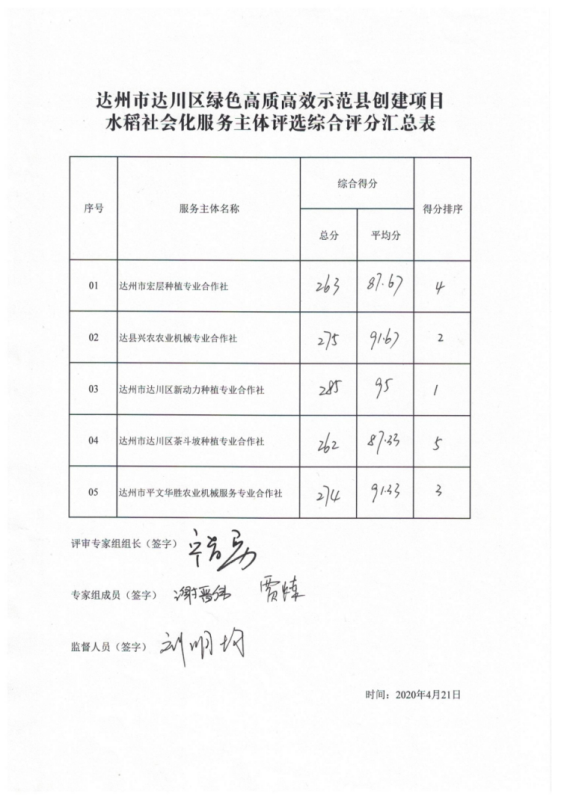 达州市达川区绿色高质高效示范县创建项目
水稻社会化服务主体评选综合评分汇总表
序号 服务主体名称 综合得分 得分排序
总分 平均分
01 达州市宏层种植专业合作社 263 87.67 4
02 达县兴农农业机械专业合作社 275 91.67 2
03 达州市达川区新动力种植专业合作社 285 95 1
04 达州市达川区茶斗坡种植专业合作社 262 87.33 5
05 达州市平文华胜农业机械服务专业合作社 274 91.33 3
评审专家组组长（签字）
专家组成员（签字）
监督人员（签字） 刘明均
时间：2020年4月21日